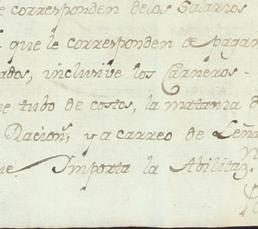 e corresponden delos Salarios
que le corresponden de pagar
ados, inclusive los Carneros -
ue tubo de costos, la matanza d
Racion^s, y acarreo de Leña
ue Importa la Abilitaz^n.